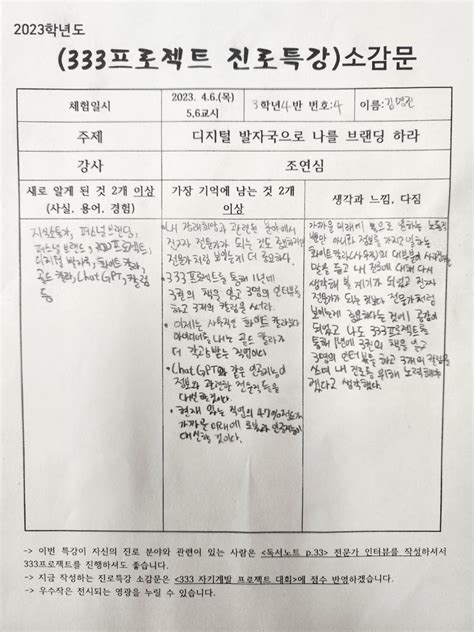 2023학년도
(333프로젝트 진로특강)소감문
체험일시
2023. 4.6.(목)
5,6교시
3학년 4반 번호: 4
이름:
주제
디지털 발자국으로 나를 브랜딩 하라
강사
조연심
새로 알게 된 것 2개 이상
(사실, 용어, 경험)
가장 기억에 남는 것 2개
이상
생각과 느낌, 다짐
퍼스널브랜딩,
퍼스널 브랜드, 300프로젝트,
디지털 발자국, 화이트칼라,
골드 칼라, Chat GPT, 칼럼
등
• 내 장래희망과 관련된 분야에서
전문가가 되는 것도 중요하지만
전문가처럼 보이는게 더 중요하다.
• 333프로젝트를 통해 1년에
3권의 책을 읽고 3명의 인터뷰를
하고 3개의 칼럼을 써라.
• 이제는 사무직인 화이트 칼라보다
아이디어를 내는 골드 칼라가
더 각광받는 직업이다.
• Chat GPT와 같은 인공지능이
정보와 관련한 전문직들을
대신할 것이다.
• 현재 있는 직업의 47%정도가
가까운 미래에 로봇과 인공지능이
대신할 것이다.
가까운 미래에 몸으로 일하는 노동직
뿐만 아니라 정보를 가지고 일하는
화이트칼라(사무직)의 대부분이 사라진다는
말을 듣고 내 진로에 대해 다시
생각해 볼 계기가 되었고
전문가가 되는 것보다 전문가처럼
보이는게 중요하다는 것이 공감이
되었고 나도 333프로젝트를
통해 1년에 3권의 책을 읽고
3명의 인터뷰를 하고 3개의 칼럼을
쓰며 내 진로를 위해 노력해야
겠다고 생각했다.
-> 이번 특강이 자신의 진로 분야와 관련이 있는 사람은 <독서노트 p.33> 전문가 인터뷰를 작성하셔서
333프로젝트를 진행하셔도 좋습니다.
-> 지금 작성하는 진로특강 소감문은 <333 자기개발 프로젝트 대회>에 점수 반영하겠습니다.
-> 우수작은 전시되는 영광을 누릴 수 있습니다.